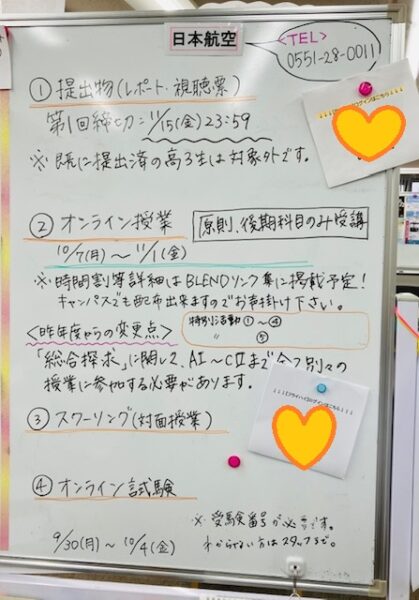 日本航空
<TEL>
0551-28-0011
① 提出物(レポート・視聴票)
第1回締切:11/15(金)23:59
※既に提出済の高3生は対象外です。
② オンライン授業
原則、後期科目のみ受講
10/7(月)〜11/1(金)
※時間割等詳細はBLENDリンク集に掲載予定!
キャンパスでも配布出来ますのでお声掛け下さい。
<昨年度からの変更点>
特別活動①〜④
〃 ⑤
「総合探求」に関して、AI〜CⅡまで全て別々の
授業に参加する必要があります。
③ スクーリング(対面授業)
④ オンライン試験
※受験番号が必要です。
わからない方はスタッフまで。
9/30(月)〜10/4(金)